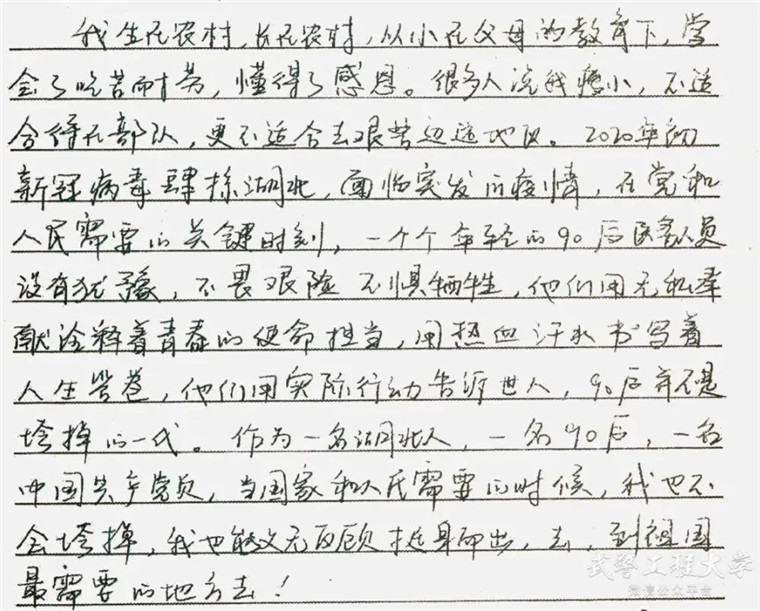 我生在农村，长在农村，从小在父母的教育下，学
会了吃苦耐劳，懂得了感恩。很多人说我瘦小，不适
合待在部队，更不适合去艰苦边远地区。2020年初
新冠病毒肆掠湖北，面临突发的疫情，在党和
人民需要的关键时刻，一个个年轻的90后医务人员
没有犹豫，不畏艰险 不惧牺牲，他们用无私奉
献诠释着青春的使命担当，用热血汗水书写着
人生答卷，他们用实际行动告诉世人，90后并不是
垮掉的一代。作为一名湖北人，一名90后，一名
中国共产党员，当国家和人民需要的时候，我也不
会垮掉，我也能义无反顾挺身而出，去，到祖国
最需要的地方去！
武警工程大学
微信公众平台